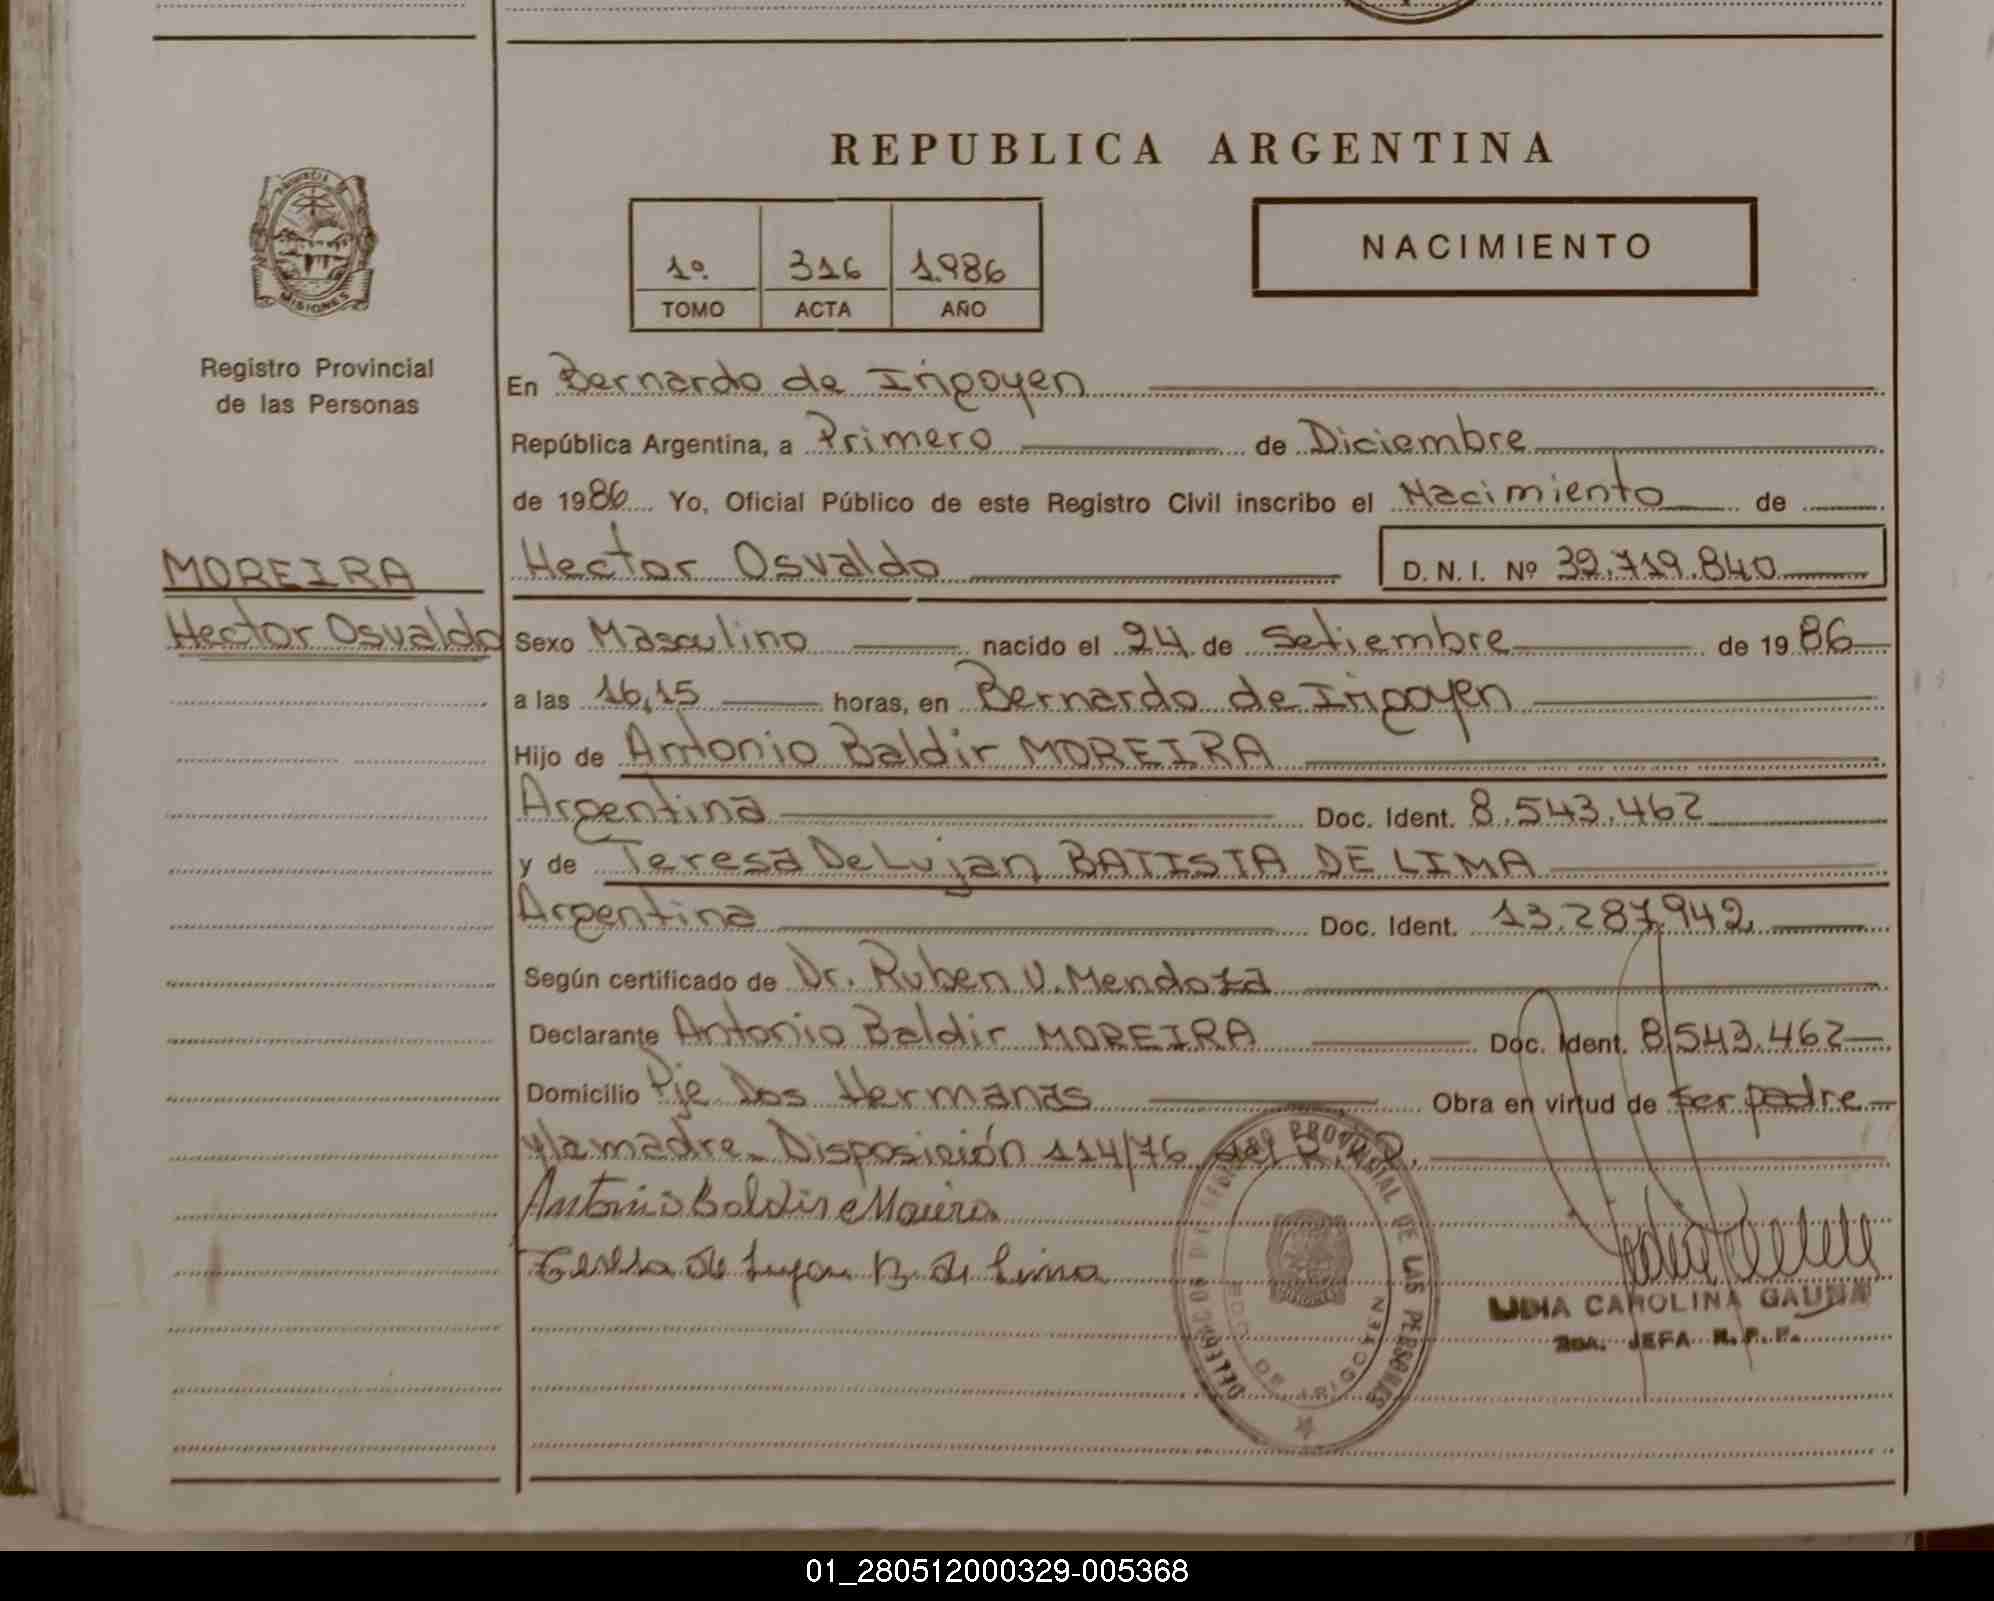 REPUBLICA ARGENTINA
PROVINCIA DE
MISIONES
Registro Provincial
de las Personas
1º 316 1.986
TOMO ACTA AÑO
NACIMIENTO
En Bernardo de Irigoyen
República Argentina, a Primero de Diciembre
de 1986 Yo, Oficial Público de este Registro Civil inscribo el Nacimiento de
MOREIRA
Hector Osvaldo
Hector Osvaldo D. N. I. Nº 32.719.840
Sexo Masculino nacido el 24 de Setiembre de 1986
a las 16,15 horas, en Bernardo de Irigoyen
Hijo de Antonio Baldir MOREIRA
Argentina Doc. Ident. 8.543.462
y de Teresa De Lujan BATISTA DE LIMA
Argentina Doc. Ident. 13.287.942
Según certificado de Dr. Ruben V. Mendoza
Declarante Antonio Baldir MOREIRA Doc. Ident. 8.543.462
Domicilio Pje Dos Hermanas Obra en virtud de ser padre
y la madre. Disposición 114/76 del
Antonio Baldir Moreira
Teresa de Lujan B. de Lima
PROVINCIAL DE LAS PERSONAS
DE IRIGOYEN
LIDIA CAROLINA GAUNA
2DA. JEFA R. P. P.
01_280512000329-005368